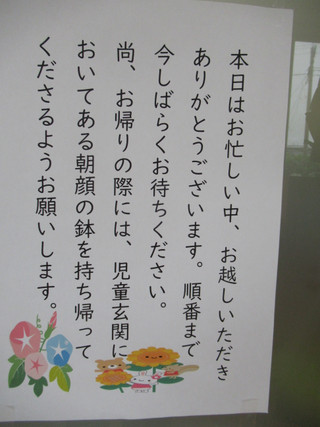 本日はお忙しい中、お越しいただき
ありがとうございます。順番まで
今しばらくお待ちください。
尚、お帰りの際には、児童玄関に
おいてある朝顔の鉢を持ち帰って
くださるようお願いします。